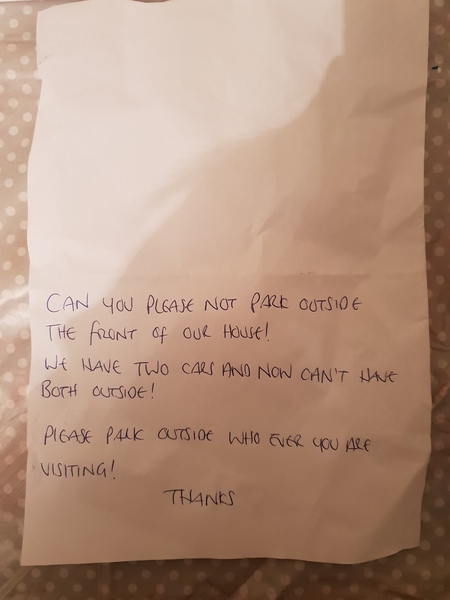 CAN YOU PLEASE NOT PARK OUTSIDE
THE FRONT OF OUR HOUSE!
WE HAVE TWO CARS AND NOW CAN'T HAVE
BOTH OUTSIDE!
PLEASE PARK OUTSIDE WHO EVER YOU ARE
VISITING!
THANKS